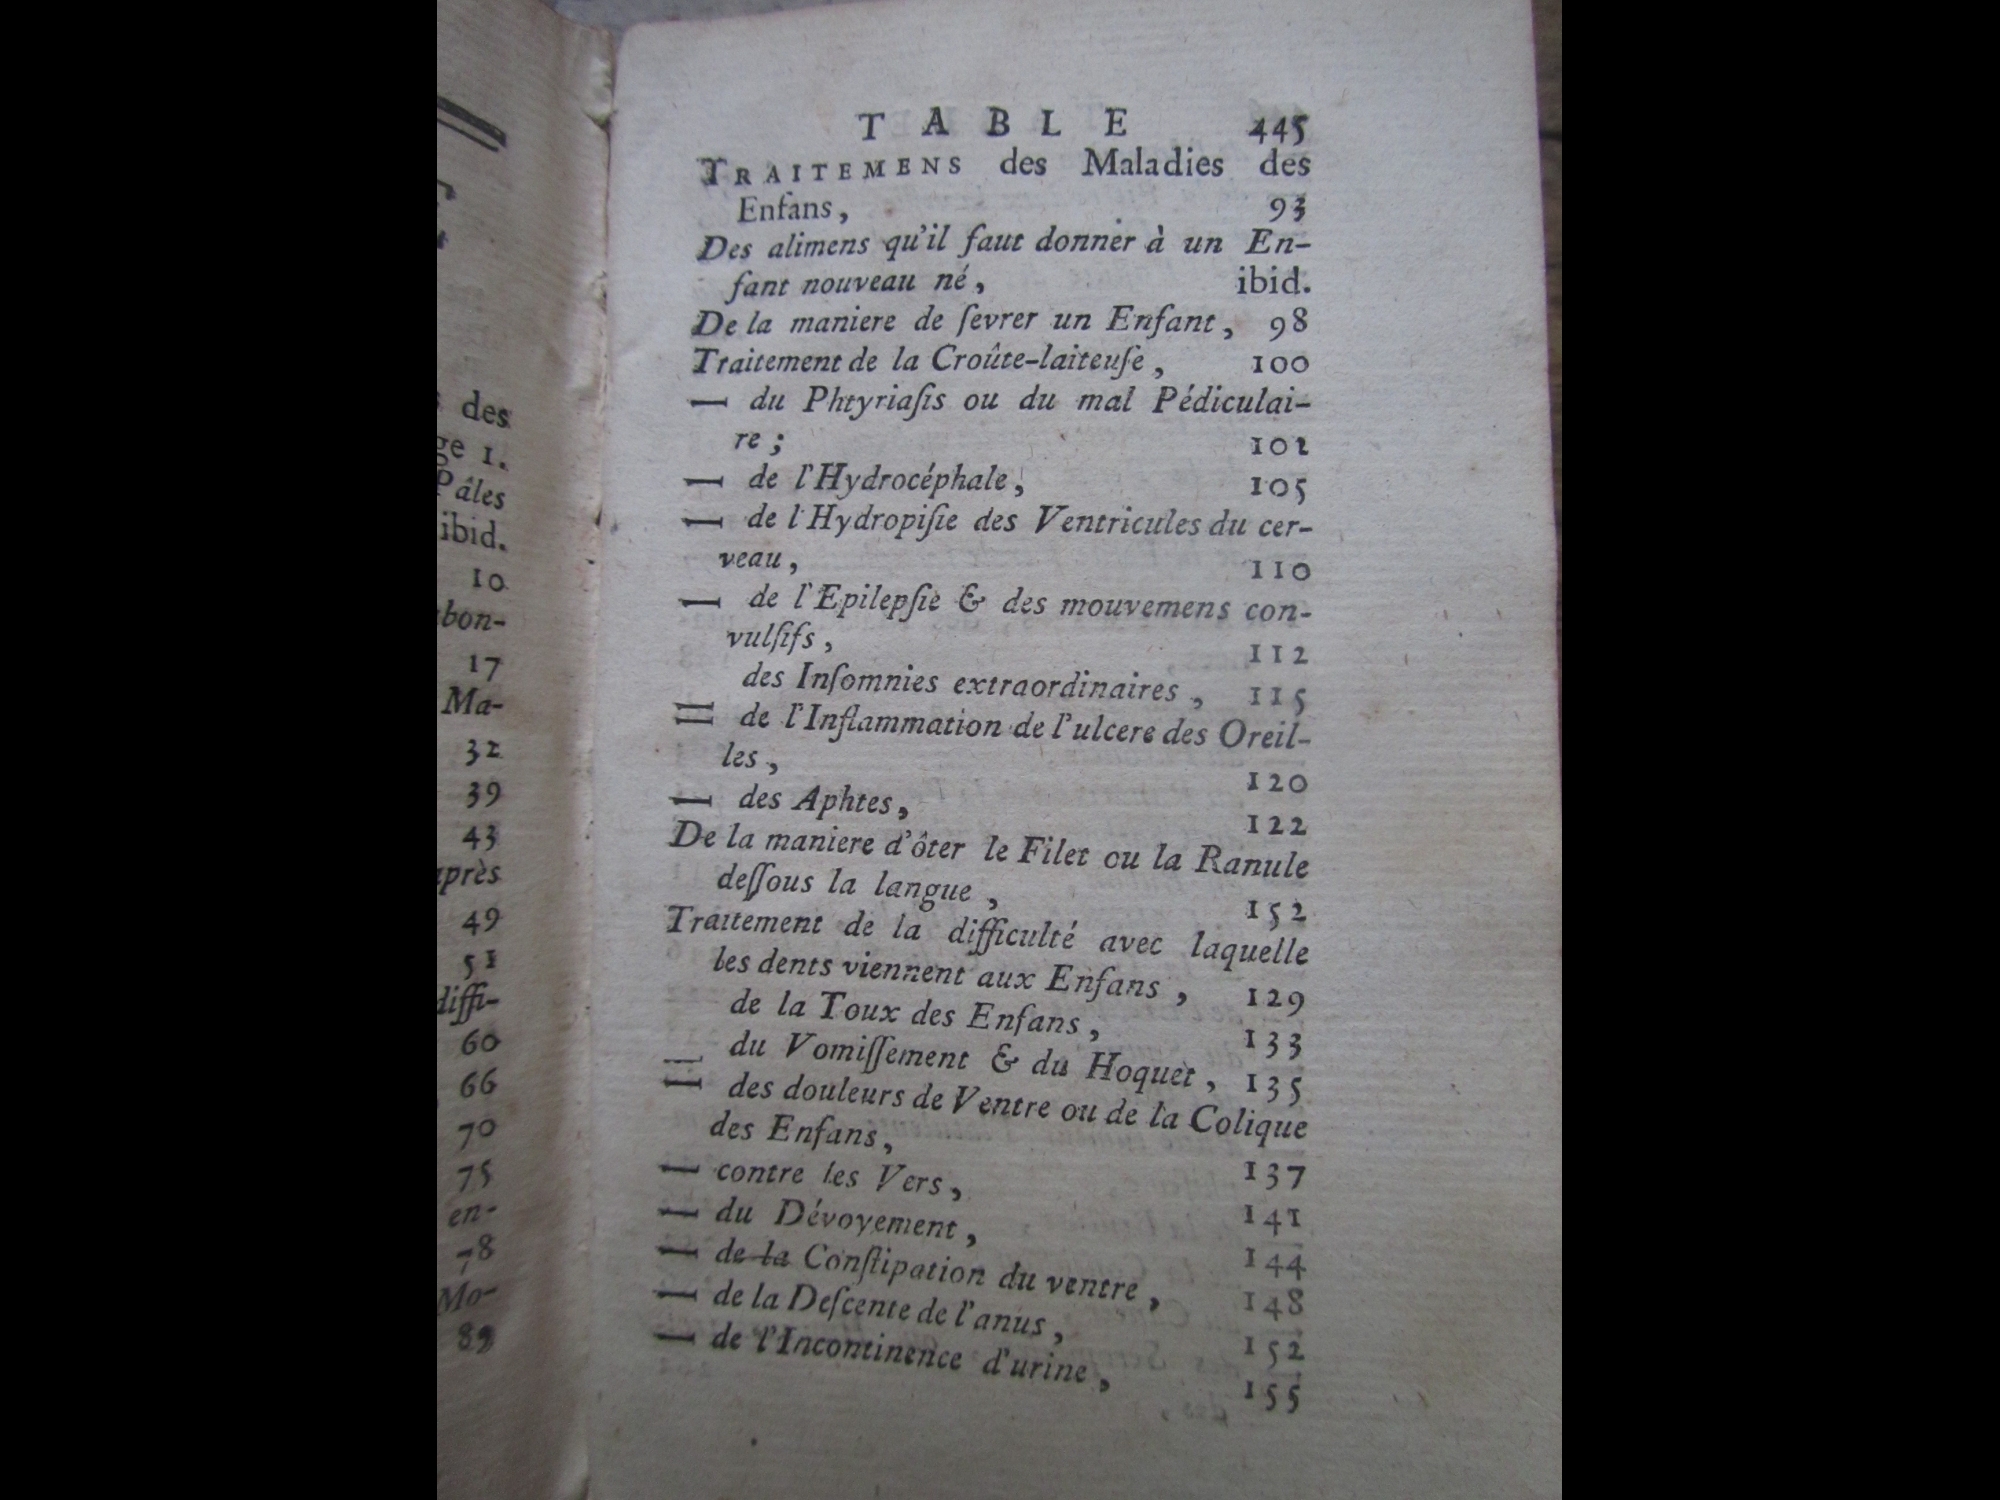 des
ge 1.
Pâles
ibid.
10
bon-
17
Ma-
32
39
43
près
49
51
diffi-
60
66
70
75
en-
78
Mo-
89
TABLE 445
TRAITEMENS des Maladies des
Enfans, 93
Des alimens qu'il faut donner à un En-
fant nouveau né, ibid.
De la maniere de ſevrer un Enfant, 98
Traitement de la Croûte-laiteuſe, 100
— du Phtyriaſis ou du mal Pédiculai-
re; 102
— de l'Hydrocéphale, 105
— de l'Hydropiſie des Ventricules du cer-
veau, 110
— de l'Epilepſie & des mouvemens con-
vulſifs, 112
des Inſomnies extraordinaires, 115
— de l'Inflammation de l'ulcere des Oreil-
les, 120
— des Aphtes, 122
De la maniere d'ôter le Filet ou la Ranule
deſſous la langue, 152
Traitement de la difficulté avec laquelle
les dents viennent aux Enfans, 129
de la Toux des Enfans, 133
du Vomiſſement & du Hoquet, 135
— des douleurs de Ventre ou de la Colique
des Enfans, 137
— contre les Vers, 141
— du Dévoyement, 144
— de la Conſtipation du ventre, 148
— de la Deſcente de l'anus, 152
— de l'Incontinence d'urine, 155